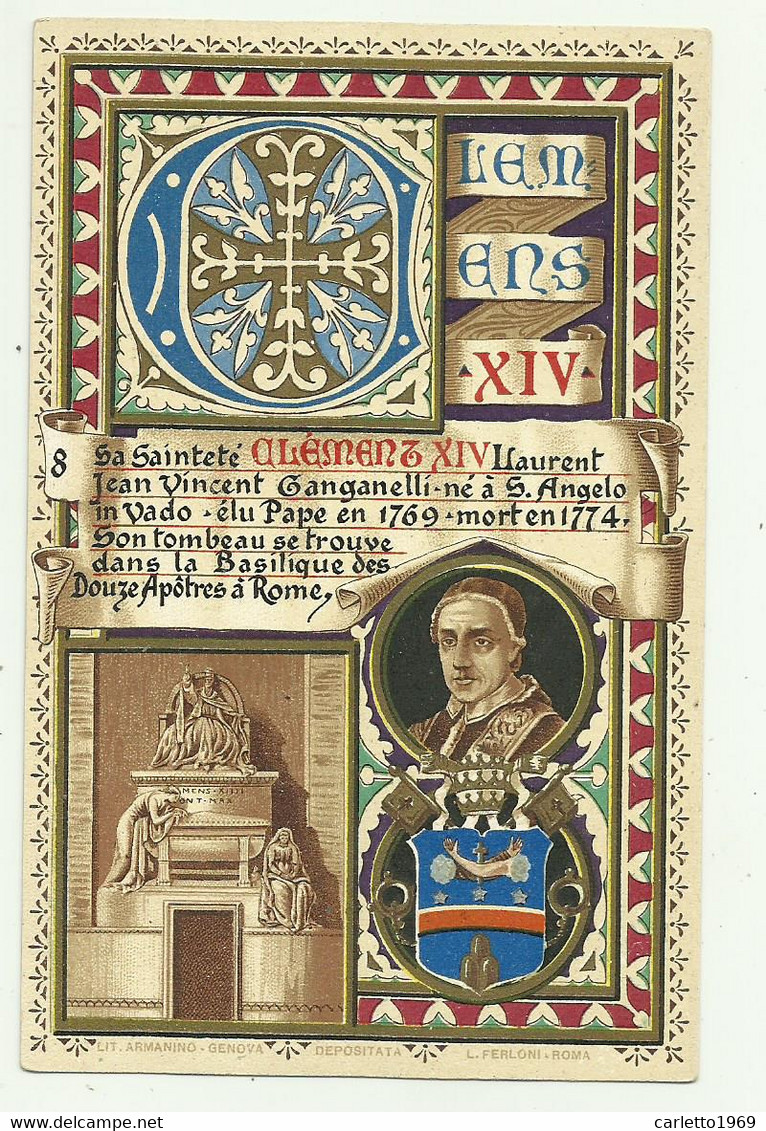 CLEM:
ENS
XIV
8
Sa Sainteté CLÉMENT XIV Laurent
Jean Vincent Ganganelli-né à S. Angelo
in Vado - élu Pape en 1769 - mort en 1774.
Son tombeau se trouve
dans la Basilique des
Douze Apôtres à Rome,
MENS·XIIII
ONT·MAX
LIT. ARMANINO - GENOVA DEPOSITATA L. FERLONI - ROMA
carletto1969